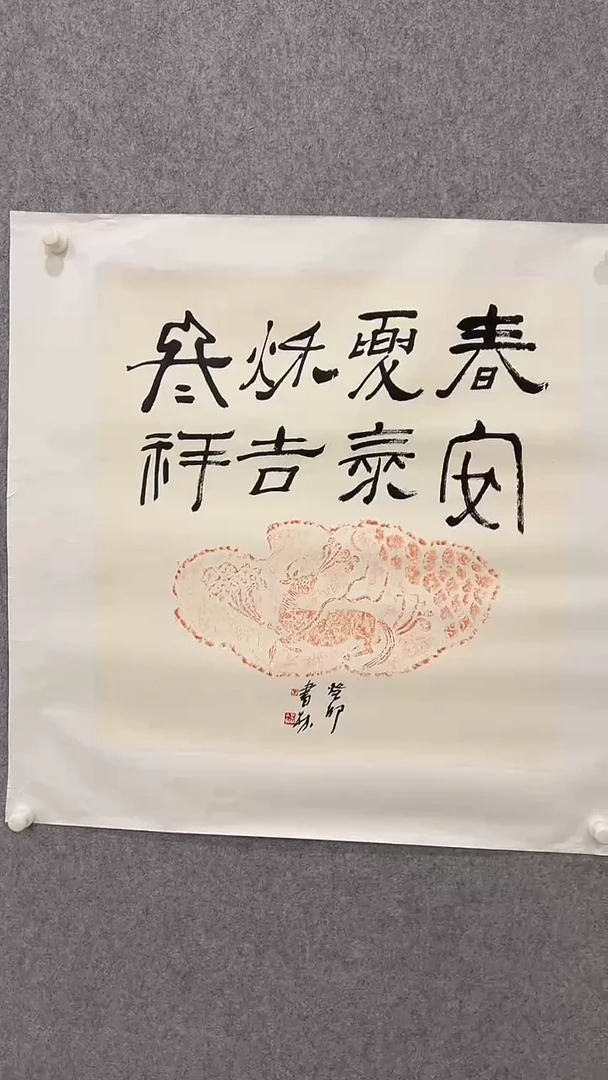 春安
夏泰
秌吉
冬祥
癸卯
書